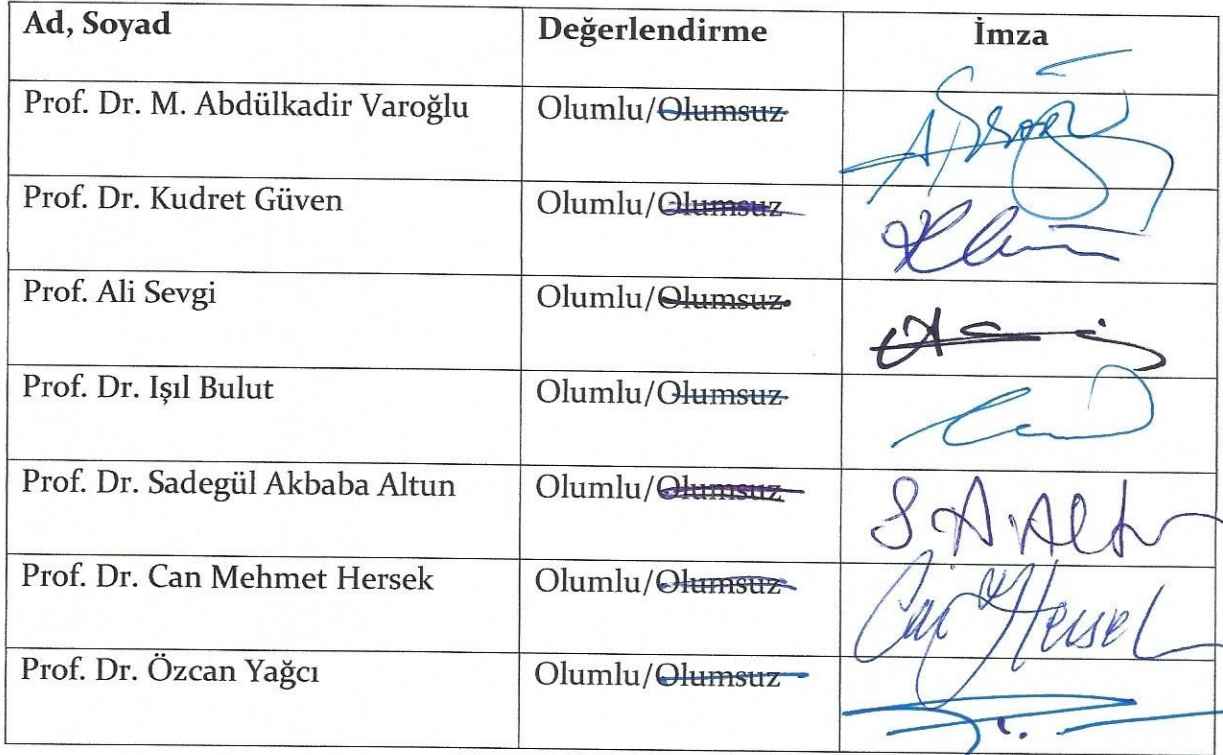 Ad, Soyad Değerlendirme İmza
Prof. Dr. M. Abdülkadir Varoğlu Olumlu/Olumsuz
Prof. Dr. Kudret Güven Olumlu/Olumsuz
Prof. Ali Sevgi Olumlu/Olumsuz
Prof. Dr. Işıl Bulut Olumlu/Olumsuz
Prof. Dr. Sadegül Akbaba Altun Olumlu/Olumsuz S.A.Altun
Prof. Dr. Can Mehmet Hersek Olumlu/Olumsuz Can Hersek
Prof. Dr. Özcan Yağcı Olumlu/Olumsuz